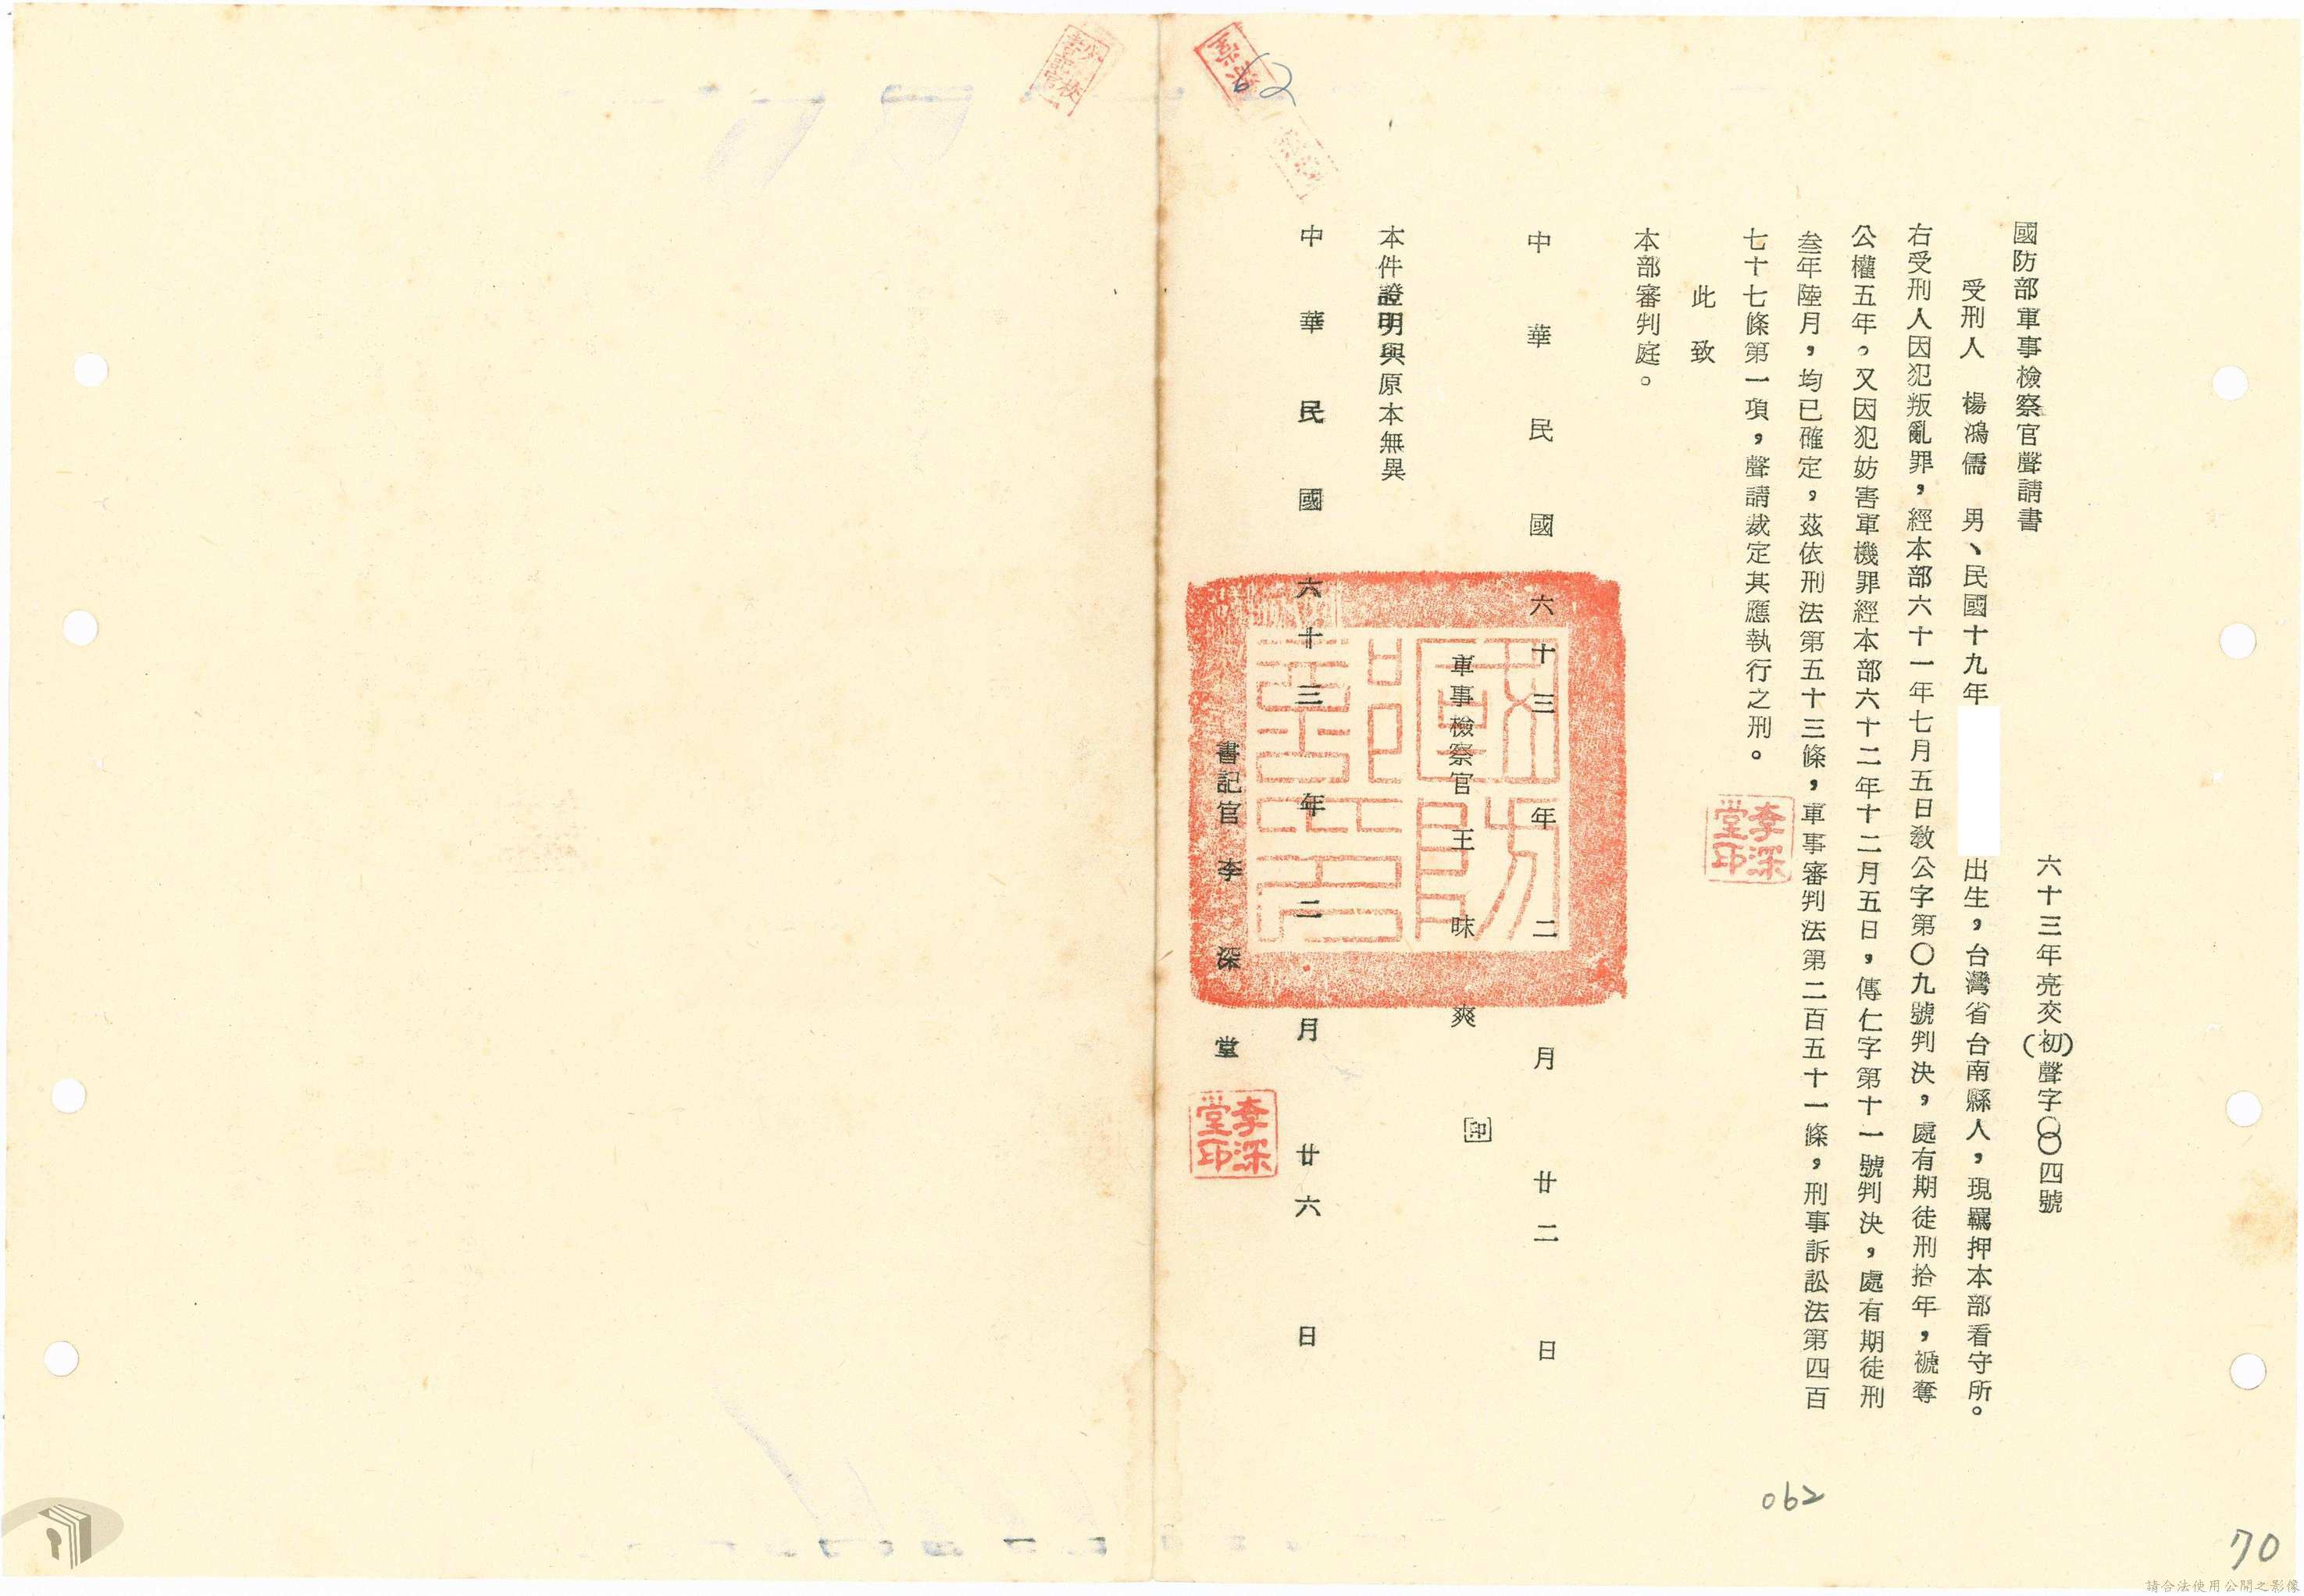 國防部軍事檢察官聲請書
六十三年亮交(初)聲字〇〇四號
受刑人 楊鴻儒 男、民國十九年 出生,台灣省台南縣人,現羈押本部看守所。
右受刑人因犯叛亂罪,經本部六十一年七月五日教公字第〇九號判決,處有期徒刑拾年,褫奪
公權五年。又因犯妨害軍機罪經本部六十二年十二月五日,傳仁字第十一號判決,處有期徒刑
叁年陸月,均已確定,茲依刑法第五十三條,軍事審判法第二百五十一條,刑事訴訟法第四百
七十七條第一項,聲請裁定其應執行之刑。
李深堂印
此致
本部審判庭。
中華民國六十三年二月廿二日
軍事檢察官 王昧爽 印
本件證明與原本無異
中華民國六十三年二月廿六日
書記官 李深堂
李深堂印
62
062
70
請合法使用公開之影像